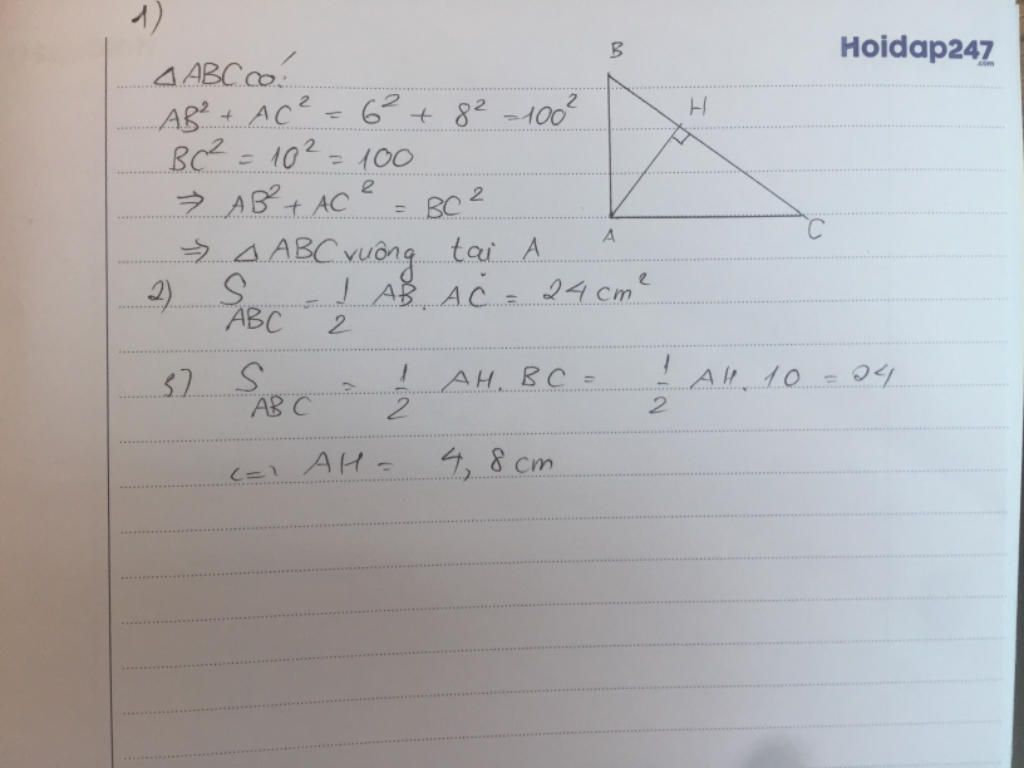 1)
Hoidap247
.com
B
△ABC có:
H
AB² + AC² = 6² + 8² = 100²
BC² = 10² = 100
⇒ AB² + AC² = BC²
A
C
⇒ △ABC vuông tại A
2) S_ABC = 1/2 AB. AC = 24 cm²
3) S_ABC = 1/2 AH. BC = 1/2 AH. 10 = 24
<=> AH = 4,8 cm